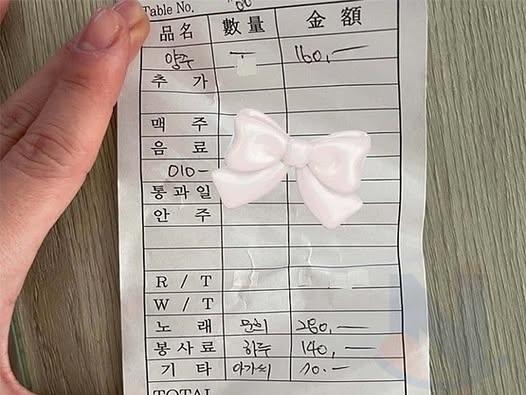 Table No.
品名 數量 金額
양주 一 160,—
추 가
맥 주
음 료
010-
통과일
안 주
R / T
W / T
노 래 문희 280,—
봉사료 하루 140,—
기 타 아가씨 10.—
TOTAL